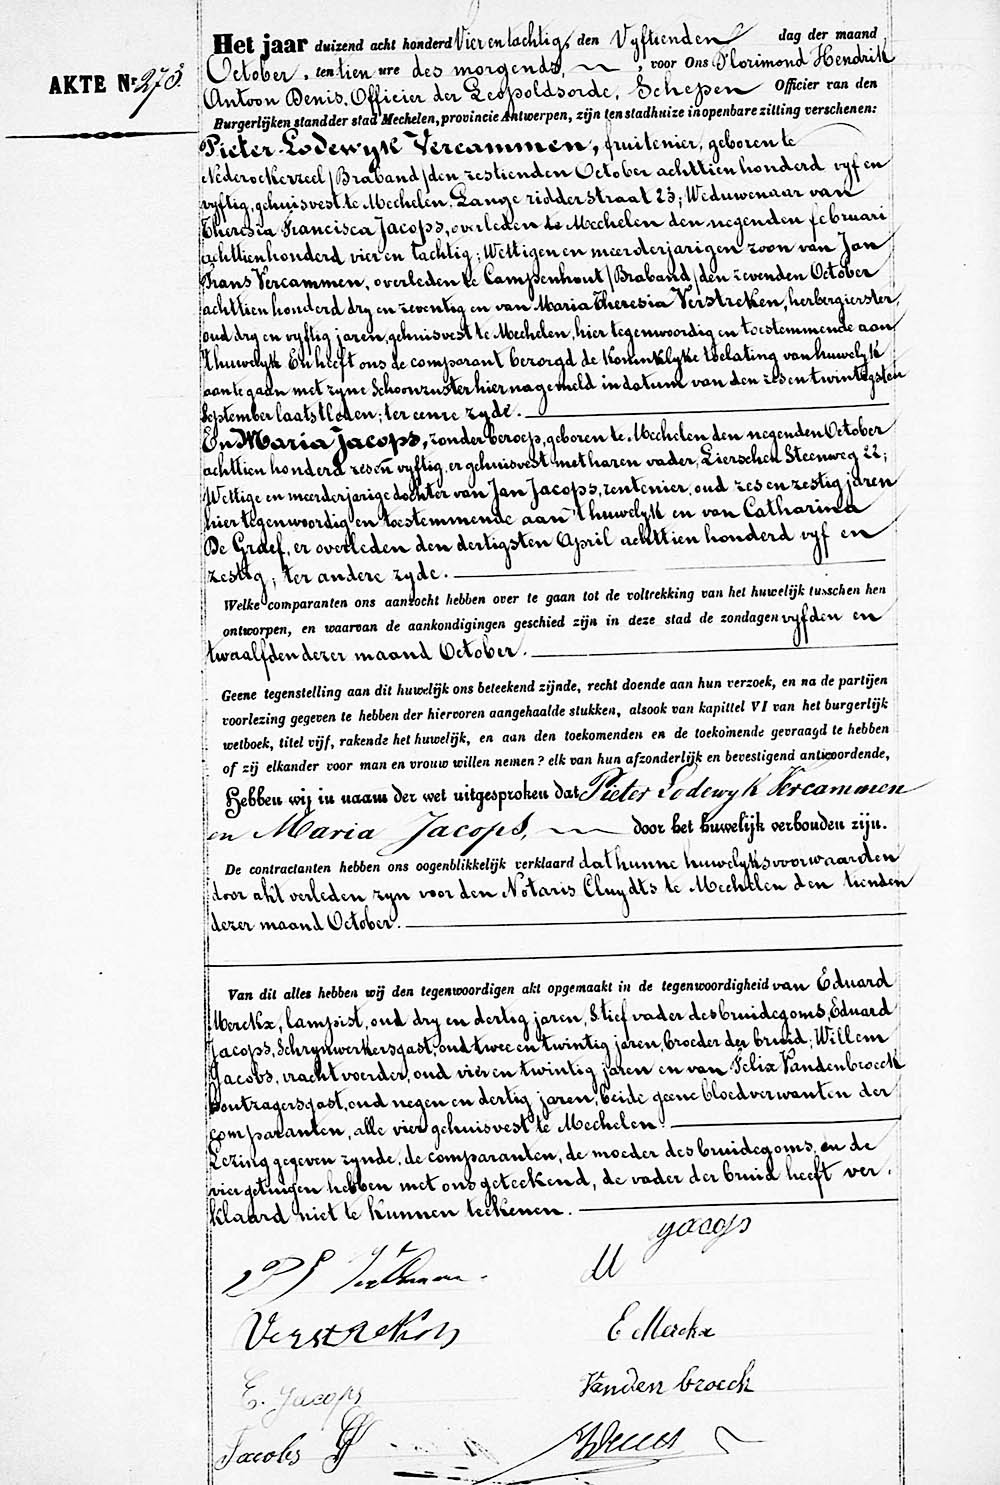 Het jaar duizend acht honderd Vier en tachtig, den Vyftienden dag der maand
AKTE Nr 273.
October, ten tien ure des morgends, voor Ons Florimond Hendrik
Antoon Denis, Officier der Leopoldsorde, Schepen Officier van den
Burgerlijken stand der stad Mechelen, provincie Antwerpen, zijn ten stadhuize in openbare zitting verschenen:
Pieter Lodewyk Vercammen, fruitenier, geboren te
Nederockerzeel (Braband) den zestienden October achttien honderd vyf en
vyftig, gehuisvest te Mechelen, Lange ridderstraat 23; Weduwenaar van
Theresia Francisca Jacops, overleden te Mechelen den negenden februari
achttien honderd vier en tachtig; Wettigen en meerderjarigen zoon van Jan
Frans Vercammen, overleden te Campenhout (Braband) den zevenden October
achttien honderd dry en zeventig en van Maria Theresia Verstreken, herbergierster,
oud dry en vyftig jaren, gehuisvest te Mechelen, hier tegenwoordig en toestemmende aan
't huwelyk En heeft ons de comparant bezorgd de Koninklyke toelating van huwelyk
aan te gaan met zyne Schoonzuster hier nagemeld in datum van den zes en twintigsten
September laatstleden; ter eenre zyde.
En Maria Jacops, zonder beroep, geboren te Mechelen den negenden October
achttien honderd zes en vyftig, er gehuisvest met haren vader, Lierschen Steenweg 22;
Wettige en meerderjarige dochter van Jan Jacops, rentenier, oud zes en zestig jaren
hier tegenwoordig en toestemmende aan 't huwelyk en van Catharina
De Graef, er overleden den dertigsten April achttien honderd vyf en
zestig; ter andere zyde.
Welke comparanten ons aanzocht hebben over te gaan tot de voltrekking van het huwelijk tusschen hen
ontworpen, en waarvan de aankondigingen geschied zijn in deze stad de zondagen vyfden en
twaalfden dezer maand October.
Geene tegenstelling aan dit huwelijk ons beteekend zijnde, recht doende aan hun verzoek, en na de partijen
voorlezing gegeven te hebben der hiervoren aangehaalde stukken, alsook van kapittel VI van het burgerlijk
wetboek, titel vijf, rakende het huwelijk, en aan den toekomenden en de toekomende gevraagd te hebben
of zij elkander voor man en vrouw willen nemen? elk van hun afzonderlijk en bevestigend antwoordende,
Hebben wij in naam der wet uitgesproken dat Pieter Lodewyk Vercammen
en Maria Jacops, door het huwelijk verbonden zijn.
De contractanten hebben ons oogenblikkelijk verklaard dat hunne huwelyksvoorwaarden
door akt verleden zyn voor den Notaris Cluydts te Mechelen den tienden
dezer maand October.
Van dit alles hebben wij den tegenwoordigen akt opgemaakt in de tegenwoordigheid van Eduard
Merckx, lampist, oud dry en dertig jaren, Stiefvader des bruidegoms, Eduard
Jacops, Schrynwerkersgast, oud twee en twintig jaren, broeder der bruid; Willem
Jacobs, vrachtvoerder, oud vier en twintig jaren en van Felix Vandenbroeck
houtzagersgast, oud negen en dertig jaren, beide geene bloedverwanten der
comparanten, alle vier gehuisvest te Mechelen.
Lezing gegeven zynde, de comparanten, de moeder des bruidegoms, en de
vier getuigen hebben met ons geteekend, de vader der bruid heeft ver
klaard niet te kunnen teekenen.
M Jacops
Verstreken
E Merckx
E. Jacops
Vanden broeck
Jacobs
Denis